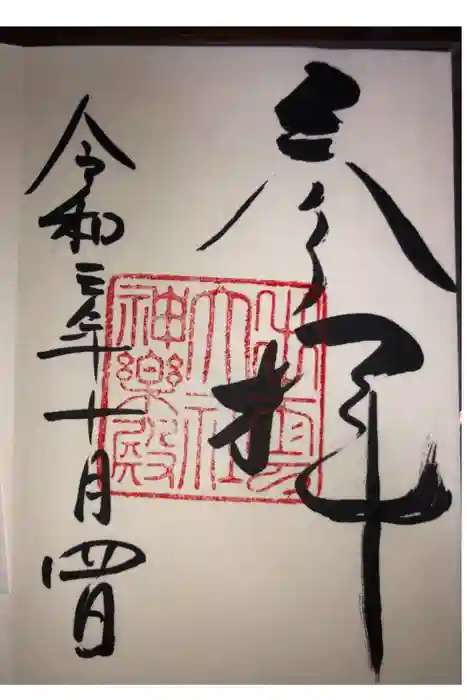 参拝
出雲
大社
神樂殿
令和三年十月四日